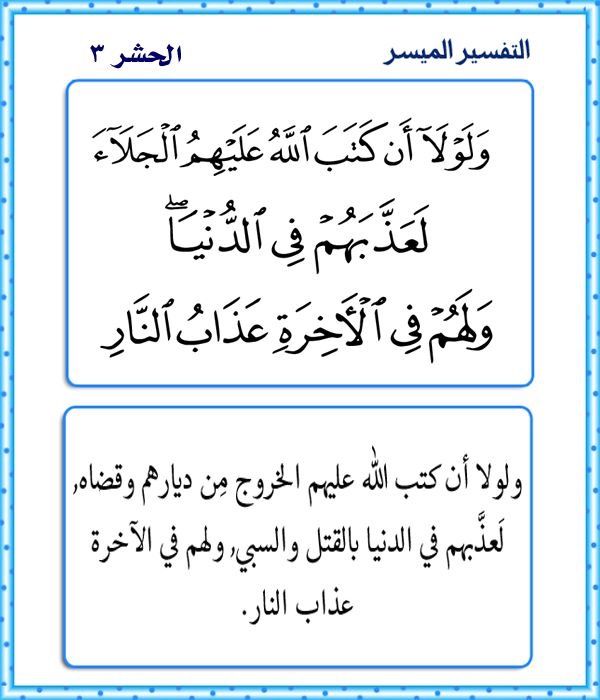 التفسير الميسر
الحشر ٣
وَلَوۡلَآ أَن كَتَبَ ٱللَّهُ عَلَيۡهِمُ ٱلۡجَلَآءَ
لَعَذَّبَهُمۡ فِي ٱلدُّنۡيَاۖ
وَلَهُمۡ فِي ٱلۡأٓخِرَةِ عَذَابُ ٱلنَّارِ
ولولا أن كتب الله عليهم الخروج مِن ديارهم وقضاه,
لَعذَّبهم في الدنيا بالقتل والسبي, ولهم في الآخرة
عذاب النار.